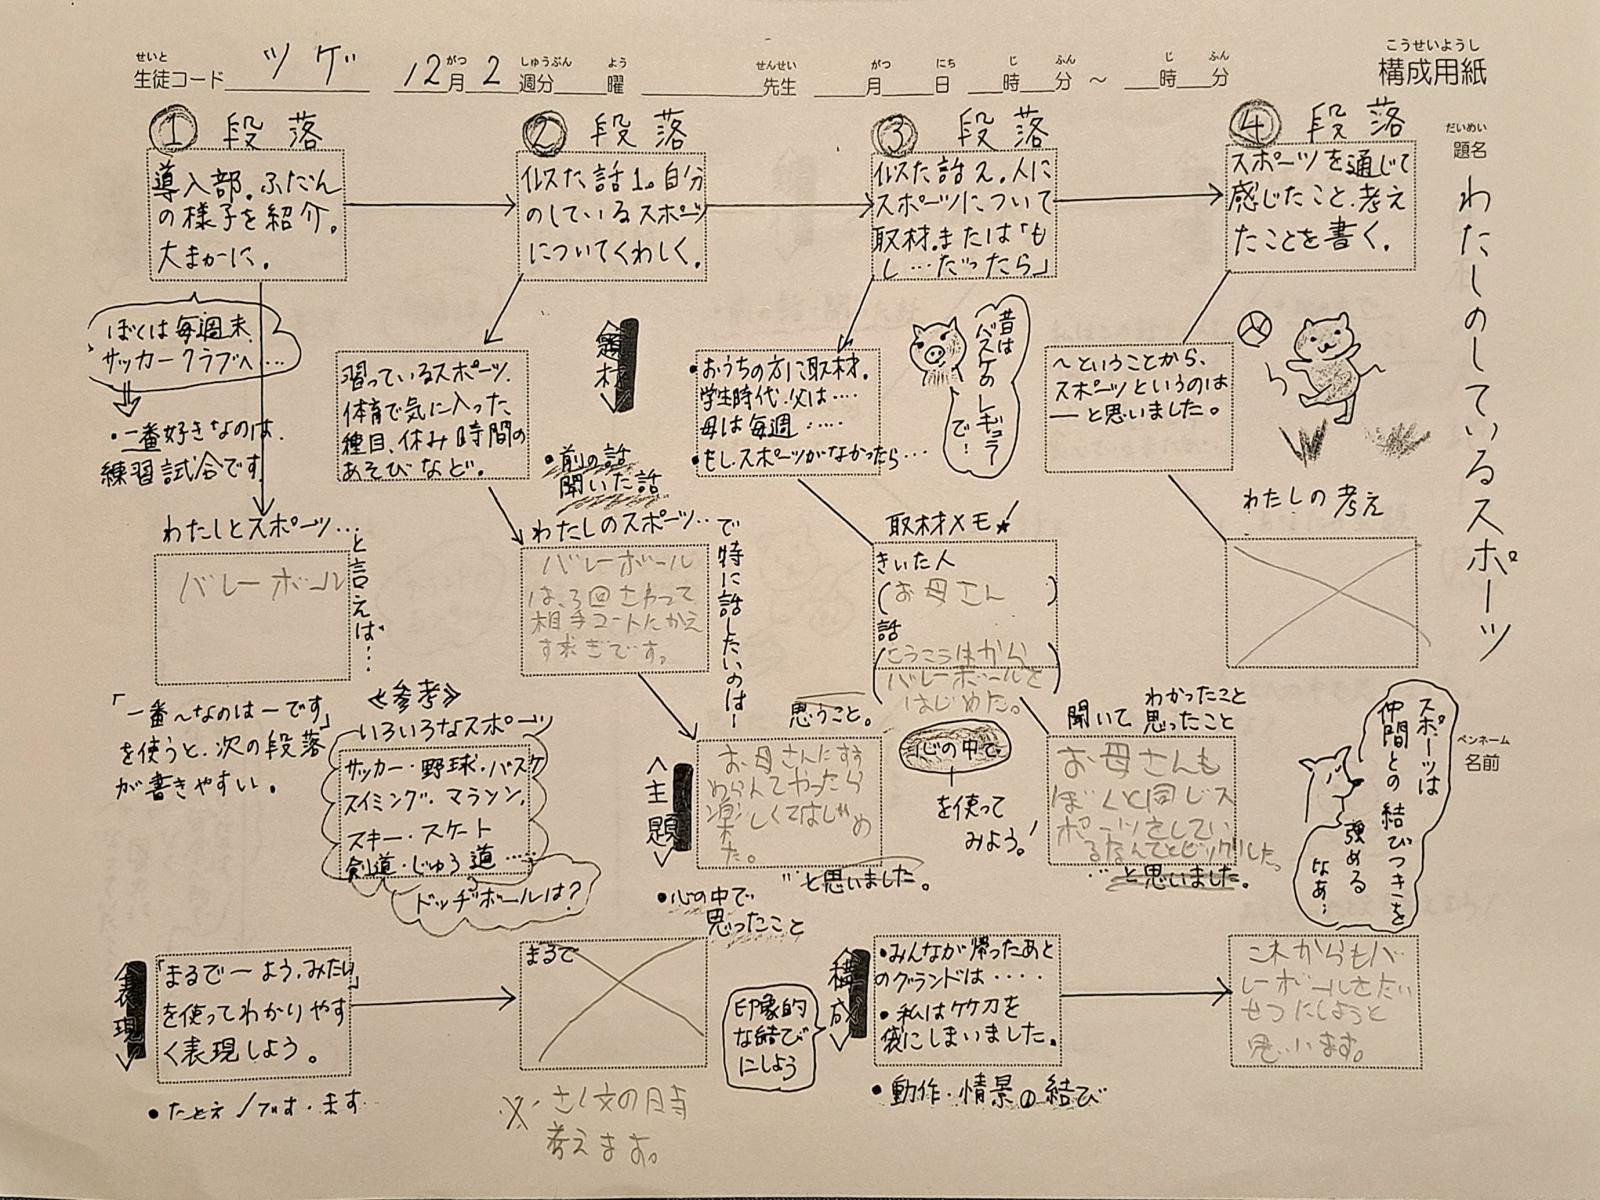 せいと
生徒コード ツゲ
12月2週分 曜
がつ しゅうぶん よう
先生
せんせい
月 日 時 分 ～ 時 分
がつ にち じ ふん じ ふん
こうせいようし
構成用紙
だいめい
題名
わたしのしているスポーツ
ペンネーム
名前
① 段落
導入部。ふだん
の様子を紹介。
大まかに。
② 段落
似た話1。自分
のしているスポーツ
についてくわしく。
③ 段落
似た話2。人に
スポーツについて
取材。または「も
し…だったら」
④ 段落
スポーツを通じて
感じたこと、考え
たことを書く。
ぼくは毎週末、
サッカークラブへ…
・一番好きなのは、
練習試合です
習っているスポーツ、
体育で気に入った
種目、休み時間の
あそびなど。
題材
・前の話
聞いた話
・おうちの方に取材。
学生時代、父は…
母は毎週…
・もし、スポーツがなかったら…
昔は
バスケの
レギュラー
で!
～ということから、
スポーツというのは
―と思いました。
わたしの考え
わたしとスポーツ…
と言えば…
バレーボール
わたしのスポーツ…
で特に話したいのは―
バレーボール
は、3回さわって
相手コートにかえ
す球ぎです。
取材メモ★
きいた人
(お母さん)
話
(こうこうはから
バレーボールを
はじめた。)
「一番～なのは―です」
を使うと、次の段落
が書きやすい。
≪参考≫
いろいろなスポーツ
サッカー・野球・バスケ
スイミング・マラソン、
スキー・スケート
剣道・じゅう道……
ドッヂボールは?
主題
思うこと。
お母さんにすす
められてやったら
楽しくてはじめ
た。
…と思いました。
・心の中で
思ったこと
心の中で
を使って
みよう!
聞いて わかったこと
思ったこと
お母さんも
ぼくと同じス
ポーツをしてい
るなんてとビックリした。
…と思いました。
スポーツは
仲間との結びつきを
強める
なぁ…
表現
「まるで―よう、みたい」
を使ってわかりやす
く表現しよう。
・たとえ
まるで
※さく文の時
考えます。
印象的
な結び
にしよう
構成
・みんなが帰ったあと
のグランドは・・・・
・私は竹刀を
袋にしまいました。
・動作・情景の結び
これからもバ
レーボールをたい
せつにしようと
思います。